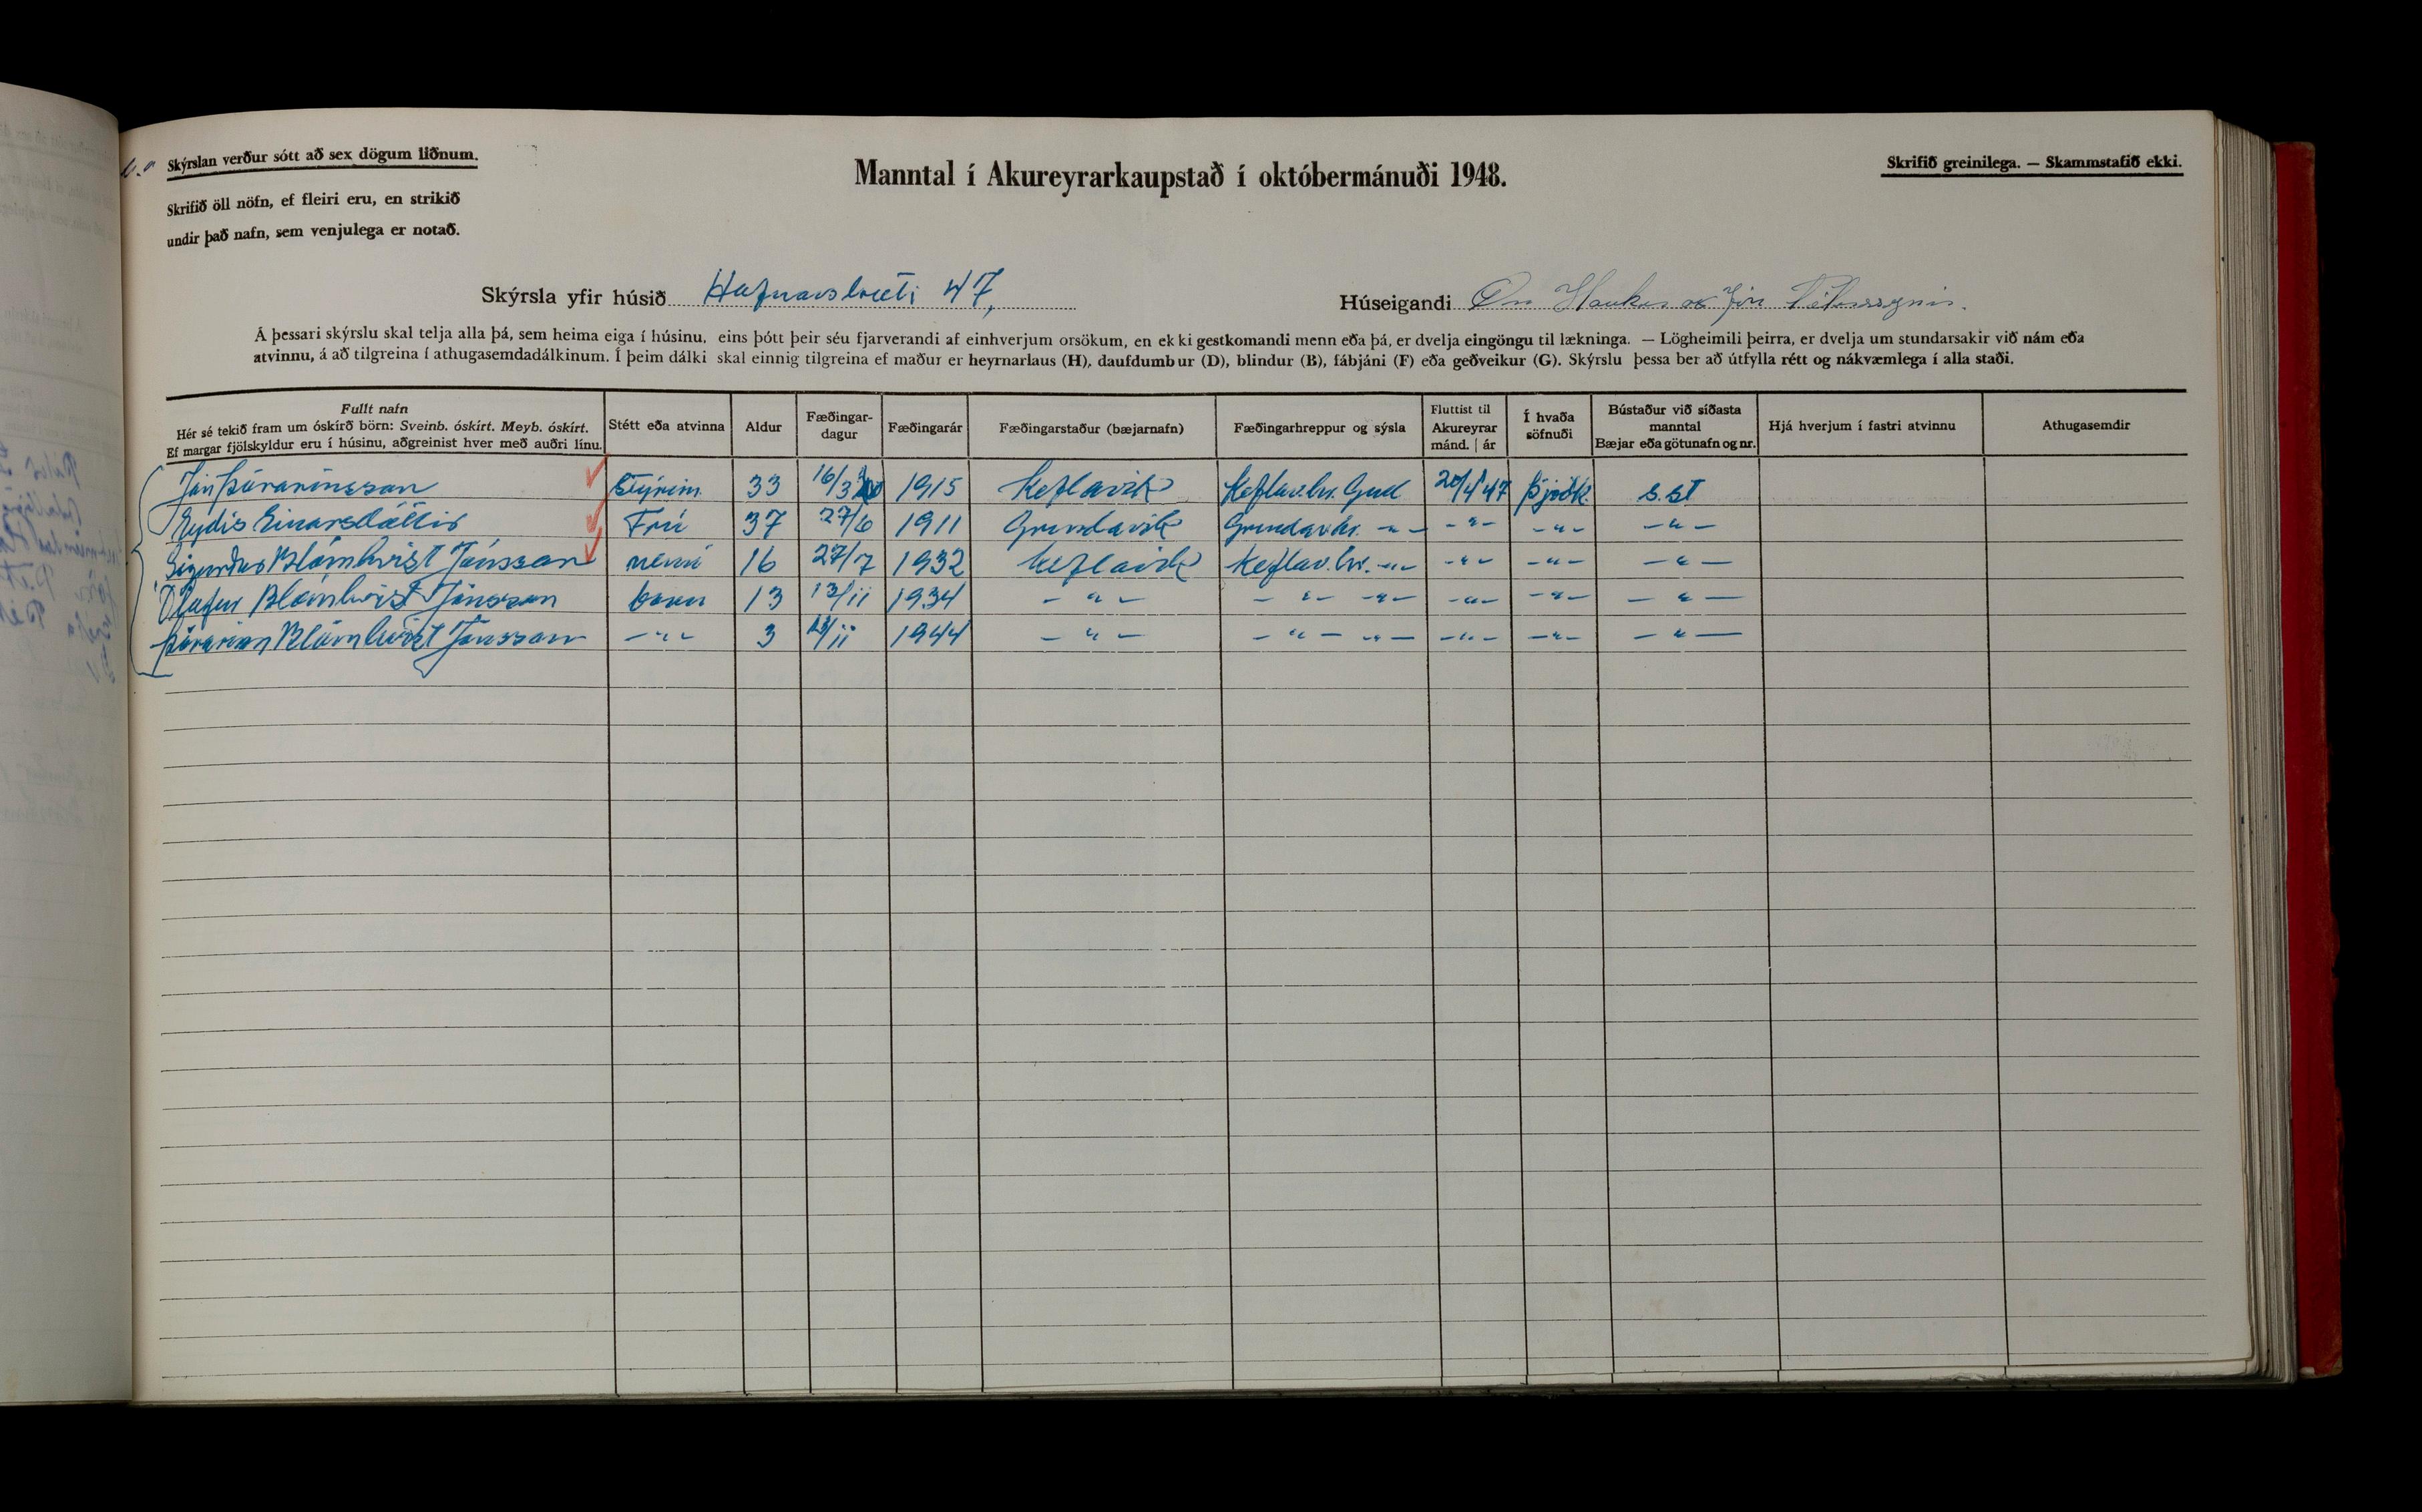 Skýrslan verður sótt að sex dögum liðnum.
Skrifið öll nöfn, ef fleiri eru, en strikið
undir það nafn, sem venjulega er notað.
Manntal í Akureyrarkaupstað í októbermánuði 1948.
Skrifið greinilega. — Skammstafið ekki.
Skýrsla yfir húsið Hafnarstræti 47,
Húseigandi Haukur og Jón
Á þessari skýrslu skal telja alla þá, sem heima eiga í húsinu, eins þótt þeir séu fjarverandi af einhverjum orsökum, en ekki gestkomandi menn eða þá, er dvelja eingöngu til lækninga. — Lögheimili þeirra, er dvelja um stundarsakir við nám eða
atvinnu, á að tilgreina í athugasemdadálkinum. Í þeim dálki skal einnig tilgreina ef maður er heyrnarlaus (H), daufdumbur (D), blindur (B), fábjáni (F) eða geðveikur (G). Skýrslu þessa ber að útfylla rétt og nákvæmlega í alla staði.
Fullt nafn
Hér sé tekið fram um óskírð börn: Sveinb. óskírt. Meyb. óskírt.
Ef margar fjölskyldur eru í húsinu, aðgreinist hver með auðri línu.
Stétt eða atvinna
Aldur
Fæðingar-
dagur
Fæðingarár
Fæðingarstaður (bæjarnafn)
Fæðingarhreppur og sýsla
Fluttist til
Akureyrar
mánd. | ár
Í hvaða
söfnuði
Bústaður við síðasta
manntal
Bæjar eða götunafn og nr.
Hjá hverjum í fastri atvinnu
Athugasemdir
Jón Þórarinsson Stýrim. 33 16/3 1915 Keflavík Keflav.hr. Gul 20/4 47 Þjóðk. s.st
Eydís Einarsdóttir Frú 37 27/6 1911 Grindavík Grindav.hr. -"- -"- -"- -"-
Sigurður Blómkvist Jónsson nemi 16 27/7 1932 Keflavík Keflav.hr. -"- -"- -"- -"-
Ólafur Blómkvist Jónsson barn 13 13/11 1934 -"- -"- -"- -"- -"- -"-
Þórarinn Blómkvist Jónsson -"- 3 23/11 1944 -"- -"- -"- -"- -"- -"-